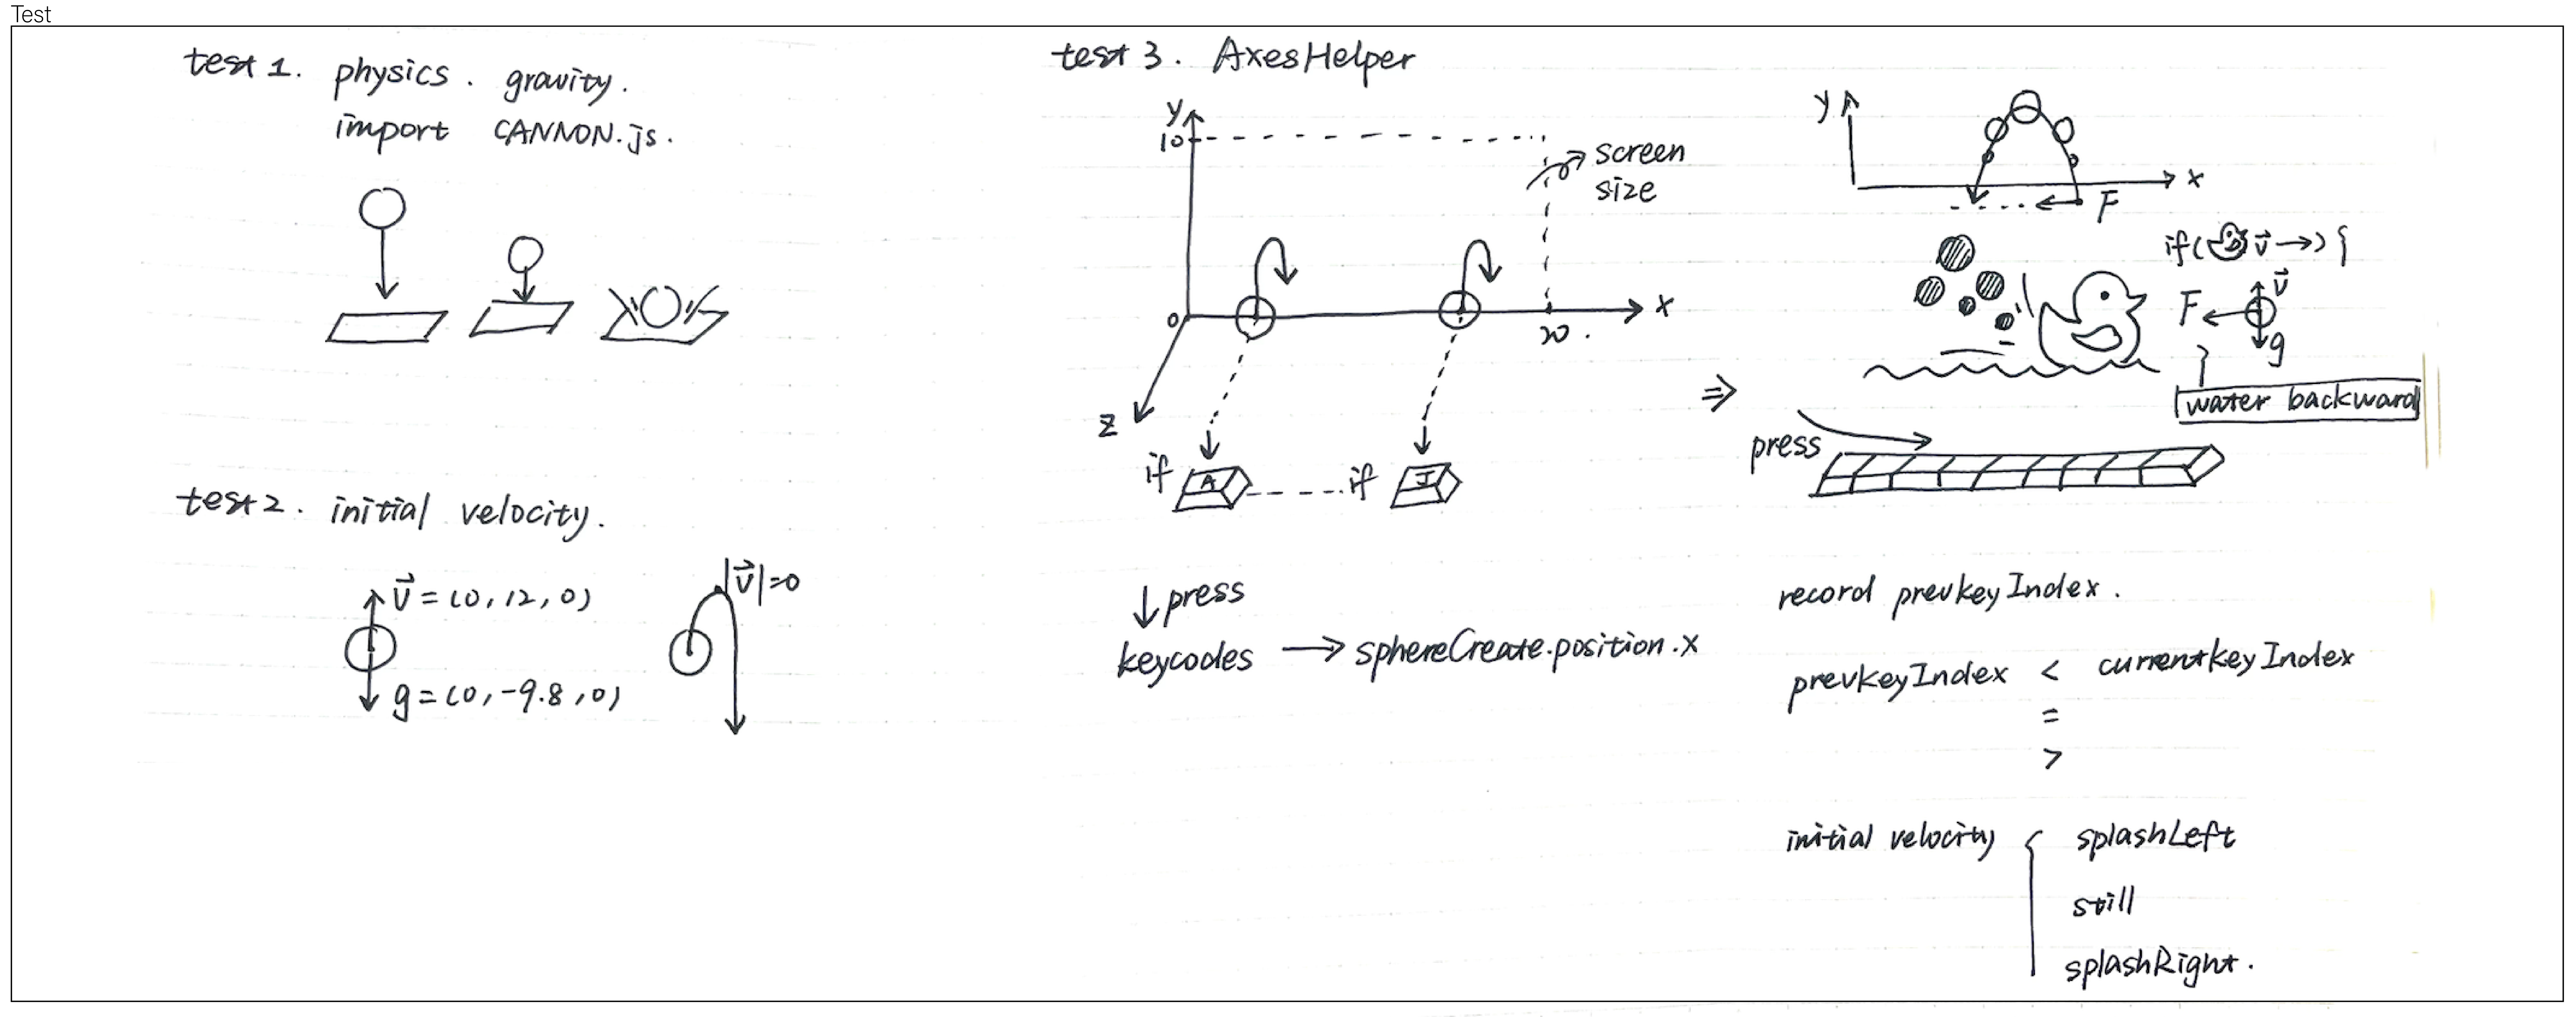 Test
test 1. physics. gravity.
import CANNON.js.
test 2. initial velocity.
v⃗ = (0, 12, 0)
g = (0, -9.8, 0)
|v⃗|=0
test 3. AxesHelper
y
10
screen
size
0
20.
x
z
if A
if J
↓ press
keycodes → sphereCreate.position.x
⇒
y
x
F
if( v⃗ →) {
v⃗
F
g
water backward
press
record prevkeyIndex.
prevkeyIndex < currentkeyIndex
=
>
initial velocity { splashLeft
still
splashRight.